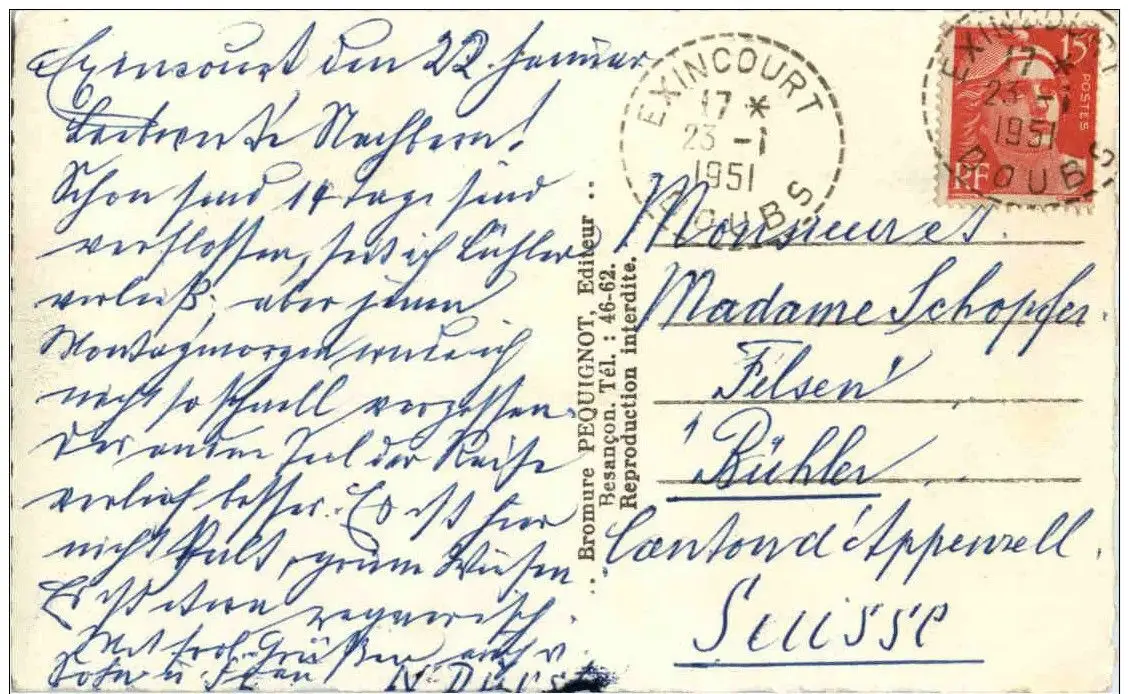 Exincourt den 22. Januar
Nachbarn!
Schon sind 14 Tage sind
verflossen, seit ich Bühler
verließ, aber jenen
Montagmorgen werde ich
nicht so schnell vergessen.
Der andere Teil der Reise
verlief besser. Es ist hier
nicht kalt, grüne Wiesen
Es ist etwas regnerisch.
Mit frdl. Grüßen auch v.
Sohn u. Frau
EXINCOURT
17 *
23 -1
1951
DOUBS
EXINCOURT
17 *
23 -1
1951
DOUBS
15F
POSTES
RF
.: Bromure PEQUIGNOT, Editeur :.
Besançon. Tél. : 46-62.
Reproduction interdite.
Monsieur et
Madame Schopfer
Felsen
Bühler
Canton d'Appenzell.
Suisse